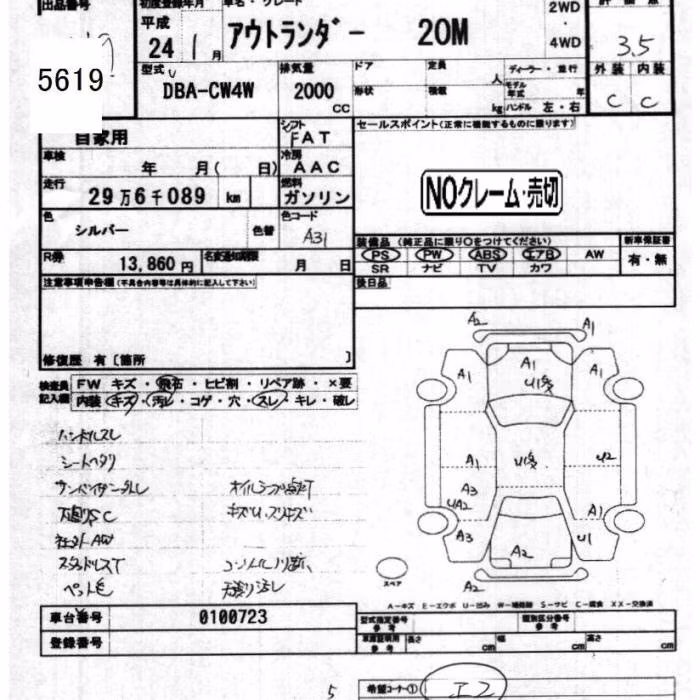 出品番号 初度登録年月 車名・グレード 2WD
平成 アウトランダー 20M
24年 1月 4WD 3.5
5619
型式 排気量 ドア 定員 ディーラー・並行 外装 内装
DBA-CW4W 2000 形状 積載 人 モデル年式 年 C C
cc kg ハンドル 左・右
シフト セールスポイント(正常に機能するものに限ります)
自家用 FAT
車検 冷房
年 月( 日) AAC
走行 燃料
29万6千089 km ガソリン NOクレーム・売切
色 色コード
シルバー 色替 A31
装備品 (純正品に限り○をつけてください) 新車保証書
R券 名変通知期限 PS PW ABS エアB AW 有・無
13,860円 月 日 SR ナビ TV カワ
注意事項申告欄(不具合内容等は具体的に記入して下さい) 後日品
修復歴 有〔箇所 〕
検査員記入欄 FW キズ・飛石・ヒビ割・リペア跡・×要
内装 キズ・汚レ・コゲ・穴・スレ・キレ・破レ
ハンドルスレ
シートヘタリ
サンバイザー
社外AW
スタッドレスT
ペット毛
A2 A1
A1 A1 A1
U1多
A1 U1多 U2
A3
UA2 A1
A3 A2 U1
スペア A2
A-キズ E-エクボ U-凹み W-補修跡 S-サビ C-腐食 XX-交換済
車台番号 0100723 型式指定番号 参考 類別区分番号 参考
登録番号 車庫証明用 参考 長さ cm 幅 cm 高さ cm
5 希望コーナー① エコ